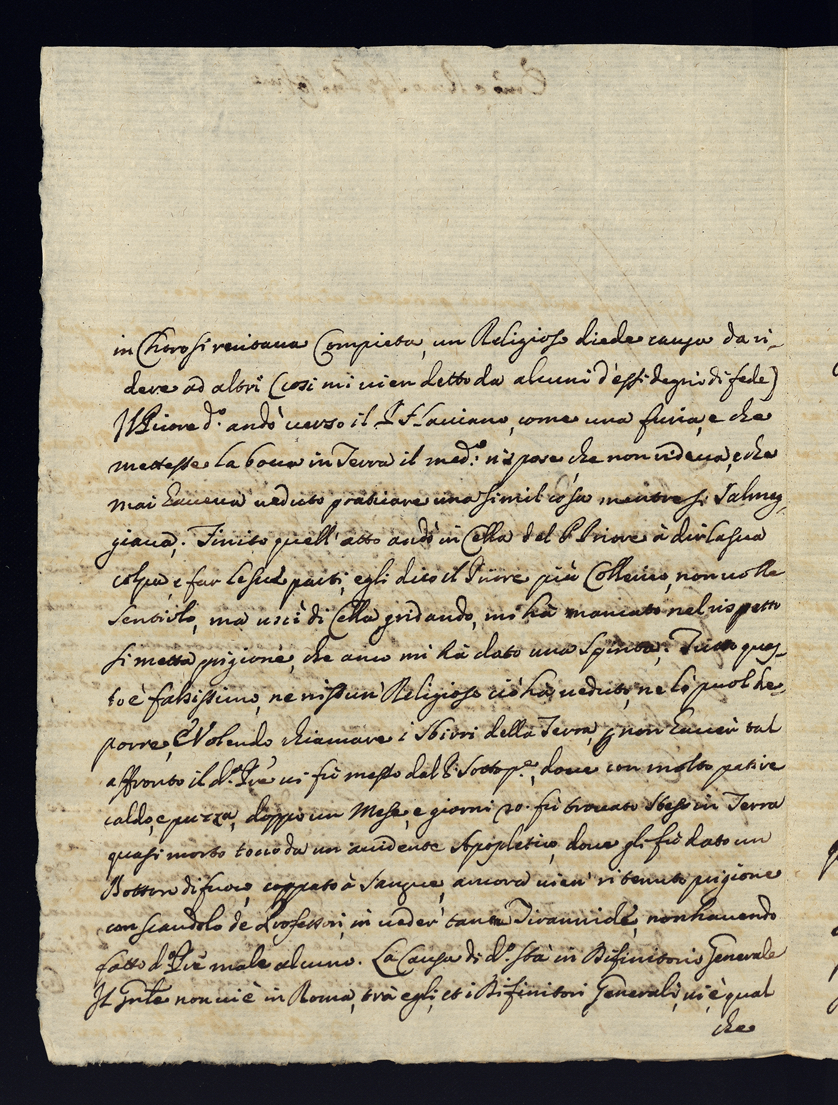 in Choro si recitava Compieta, un Religioso diede causa da ri-
dere ad altri (cosi mi vien detto da alcuni d'essi degni di fede)
Il Priore d.º andò verso il P. Flaviano, come una furia, e che
mettesse la bocca in Terra il med.º rispose che non rideva, e che
mai haveva veduto praticare una simil cosa mentre si Salmeg-
giava. Finito quell'atto andò in Cella del P. Priore à dir la sua
colpa, e far le sue parti, egli dico il Priore più Collerico, non volle
sentirlo, ma uscì di Cella gridando, mi hà mancato nel rispetto
si metta prigione, che anco mi hà dato una Spinta; Tutto ques-
to è falsissimo, ne nissun' Religioso ciò hà veduto, ne lo puol de-
porre, e Volendo chiamare i Sbirri della Terra, p non haver tal
affronto il d.º Pre vi fù messo dal P. Sottop.e, dove con molto patire
caldo, e puzza, doppo un Mese, e giorni 20. fù trovato Steso in Terra
quasi morto tocco da un accidente Apopletico, dove gli fù dato un
Botton di fuoco, coppato à Sangue, ancora vien' ritenuto prigione
con scandolo de Professori, in veder' tanta Tirannide, non havendo
fatto d.º Pre male alcuno. La Causa di d.º stà in Difinitorio Generale
Il Gnle non vi è in Roma, trà egli, et i Difinitori Generali, vi è qual
che